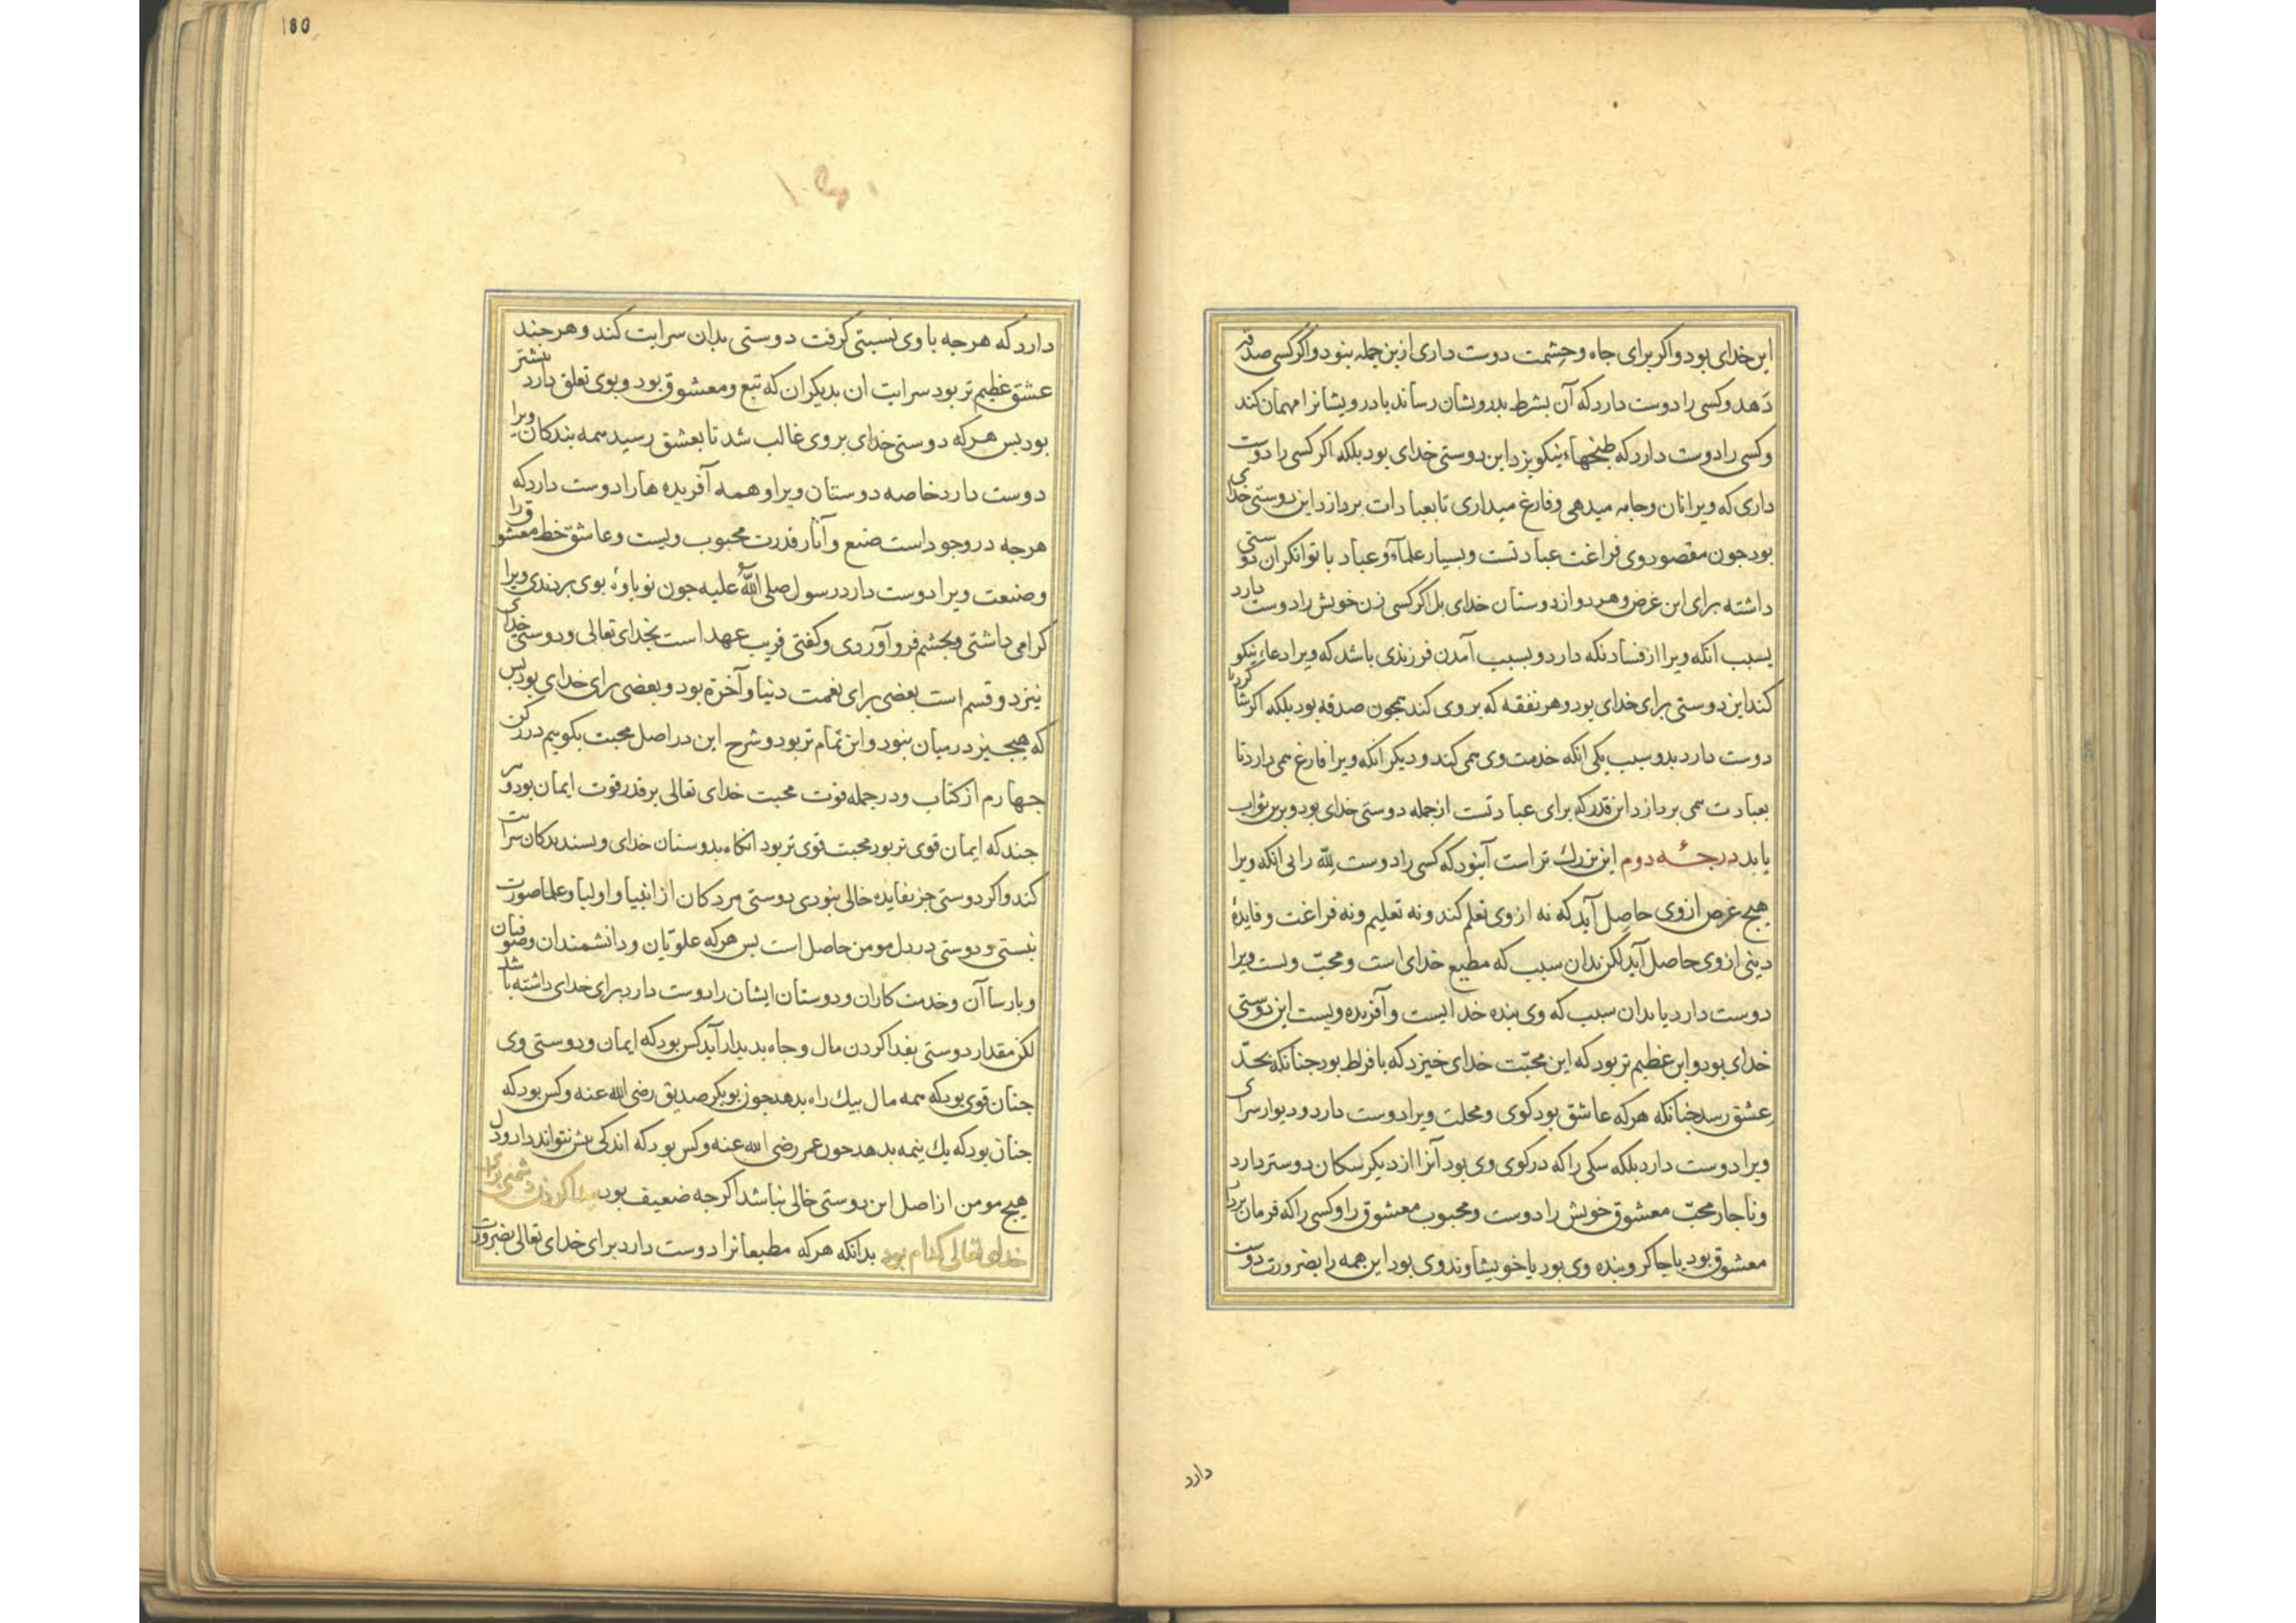 این خدای بود و اکر برای جاه و حشمت دوست داری ازین جمله نبود و اکر کسی صدقه
دهد و کسی را دوست دارد که آن بشرط بدرویشان رساند یا درویشانرا مهمان کند
و کسی را دوست دارد که طبخهاء نیکو پزد این دوستی خدای بود بلکه اکر کسی را دوست
داری که ویرا نان و جامه میدهی و فارغ میداری تا بعبادات پردازد این دوستی خدای
بود جون مقصود وی فراغت عبادتست و بسیار علمآء و عباد با توانکران دوستی
داشته برای این غرض و هر دو از دوستان خدای بل اکر کسی زن خویش را دوست دارد
بسبب انکه ویرا از فساد نکه دارد و بسبب آمدن فرزندی باشد که ویرا دعاء نیکو
کند این دوستی برای خدای بود و هر نفقه که بر وی کند همجون صدقه بود بلکه اکر شاکرد
دوست دارد بدو سبب یکی انکه خدمت وی همی کند و دیکر انکه ویرا فارغ همی دارد تا
بعبادت همی پردازد این قدر که برای عبادتست از جمله دوستی خدای بود و برین ثواب
یابد درجه دوم این بزرك تر است آنبود که کسی را دوست لله را بی انکه ویرا
هیج غرض از وی حاصل آید که نه از وی تعلم کند و نه تعلیم و نه فراغت و فایدهٔ
دینی از وی حاصل آید لکن بدان سبب که مطیع خدای است و محبّ ویست ویرا
دوست دارد یا بدان سبب که وی بنده خدایست و آفریده ویست این دوستی
خدای بود و این عظیم تر بود که این محبّت خدای خیزد که بافراط بود جنانکه بحدّ
عشق رسد جنانکه هرکه عاشق بود کوی و محلت ویرا دوست دارد و دیوار سرای
ویرا دوست دارد بلکه سکی را که در کوی وی بود آنرا از دیکر سکان دوستر دارد
و ناجار محبّ معشوق خویش را دوست و محبوب معشوق را و کسی را که فرمان بردار
معشوق بود یا جاکر و بنده وی بود یا خویشاوند وی بود این همه را بضرورت دوست
دارد
180
دارد که هرجه با وی نسبتی کرفت دوستی بدان سرایت کند و هرجند
عشق عظیم تر بود سرایت ان بدیکران که تبع و معشوق بود و بوی تعلق دارد بیشتر
بود بس هرکه دوستی خدای بر وی غالب شد تا بعشق رسید همه بندکان ویرا
دوست دارد خاصه دوستان ویرا و همه آفریده ها را دوست دارد که
هرجه در وجود است صنع و آثار قدرت محبوب ویست و عاشق خط معشوق را
و صنعت ویرا دوست دارد رسول صلی الله علیه جون نوباوهٔ بوی بردندی ویرا
کرامی داشتی و بجشم فرو آوردی و کفتی قریب عهد است بخدای تعالی و دوستی خدای
نیز دو قسم است بعضی برای نعمت دنیا و آخرة بود و بعضی برای خدای بود بس
که هیج جیز در میان نبود و این تمام تر بود و شرح این در اصل محبت بکوییم در رکن
جهارم از کتاب و در جمله قوت محبت خدای تعالی بر قدر قوت ایمان بود و هر
جند که ایمان قوی تر بود محبت قوی تر بود انکاه بدوستان خدای و بسندیدکان سرایت
کند و اکر دوستی جز بفایده خالی نبودی دوستی مردکان از انبیا و اولیا و علما صورت
نبستی و دوستی در دل مومن حاصل است بس هرکه علویان و دانشمندان و صوفیان
و بارساآن و خدمت کاران و دوستان ایشان را دوست دارد برای خدای داشته باشد
لکن مقدار دوستی بفدا کردن مال و جاه بدیدار آید کس بود که ایمان و دوستی وی
جنان قوی بود که همه مال بیك راه بدهد جون بوبکر صدیق رضی الله عنه و کس بود که
جنان بود که یك نیمه بدهد جون عمر رضی الله عنه و کس بود که اندکی بیش نتواند داد و دل
هیج مومن از اصل این دوستی خالی نباشد اکرجه ضعیف بود بیدا کردن دشمنی برای
خدای تعالی کدام بود بدانکه هرکه مطیعانرا دوست دارد برای خدای تعالی بضرورت